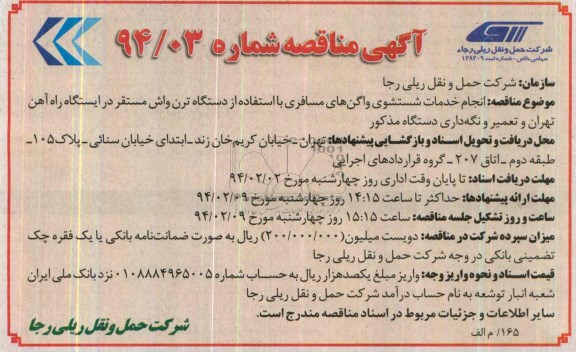 شرکت حمل و نقل ریلی رجاء
سهامی خاص - شماره ثبت ۱۲۸۲۰۹
آگهی مناقصه شماره ۹۴/۰۳
سازمان: شرکت حمل و نقل ریلی رجا
موضوع مناقصه: انجام خدمات شستشوی واگن‌های مسافری با استفاده از دستگاه ترن واش مستقر در ایستگاه راه آهن
تهران و تعمیر و نگه‌داری دستگاه مذکور
محل دریافت و تحویل اسناد و بازگشایی پیشنهادها: تهران - خیابان کریم‌خان زند - ابتدای خیابان سنائی - پلاک ۱۰۵ -
طبقه دوم - اتاق ۲۰۷ - گروه قراردادهای اجرایی
مهلت دریافت اسناد: تا پایان وقت اداری روز چهارشنبه مورخ ۹۴/۰۲/۰۲
مهلت ارائه پیشنهادها: حداکثر تا ساعت ۱۴:۱۵ روز چهارشنبه مورخ ۹۴/۰۲/۰۹
ساعت و روز تشکیل جلسه مناقصه: ساعت ۱۵:۱۵ روز چهارشنبه مورخ ۹۴/۰۲/۰۹
میزان سپرده شرکت در مناقصه: دویست میلیون (۲۰۰/۰۰۰/۰۰۰) ریال به صورت ضمانت‌نامه بانکی یا یک فقره چک
تضمینی بانکی در وجه شرکت حمل و نقل ریلی رجا
قیمت اسناد و نحوه واریز وجه: واریز مبلغ یکصدهزار ریال به حساب شماره ۰۱۰۸۸۸۴۹۶۵۰۰۵ نزد بانک ملی ایران
شعبه انبار توشعه به نام حساب درآمد شرکت حمل و نقل ریلی رجا
سایر اطلاعات و جزئیات مربوط در اسناد مناقصه مندرج است.
۱۶۵/ م الف
شرکت حمل و نقل ریلی رجا